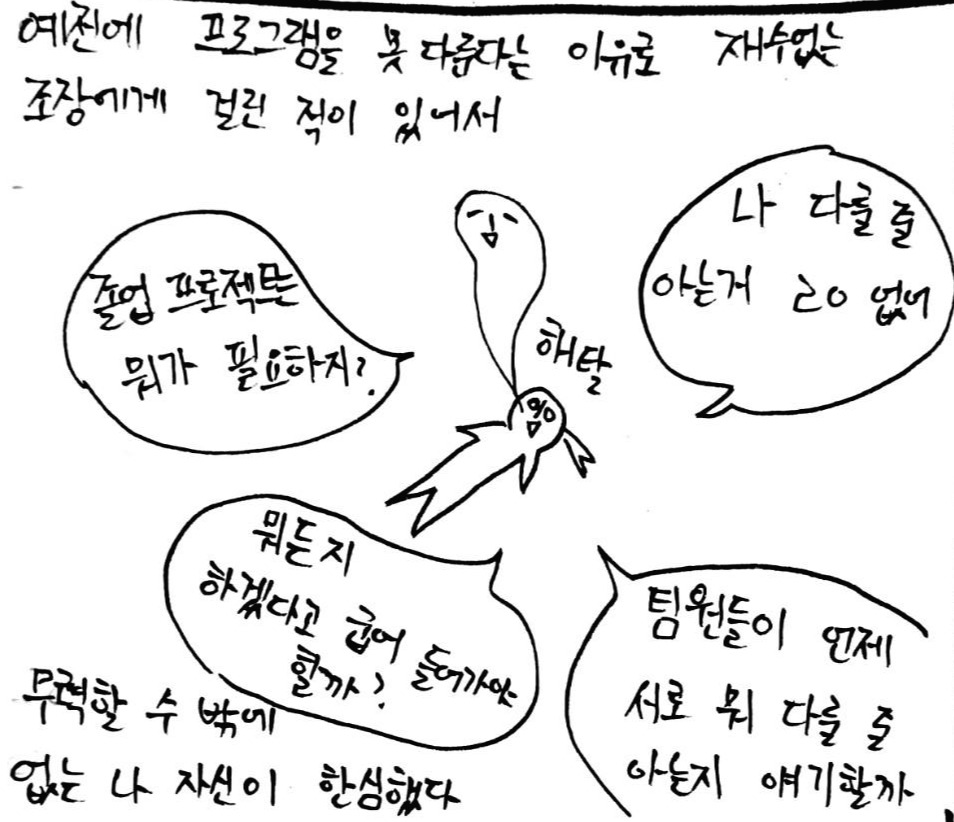 예전에 프로그램을 못 다룬다는 이유로 재수없는
조장에게 걸린 적이 있어서
졸업 프로젝트는
뭐가 필요하지?
해탈
나 다룰 줄
아는거 ㄹㅇ 없어
뭐든지
하겠다고 굽어 들어가야
할까?
팀원들이 언제
서로 뭐 다룰 줄
아는지 얘기할까
무력할 수 밖에
없는 나 자신이 한심했다